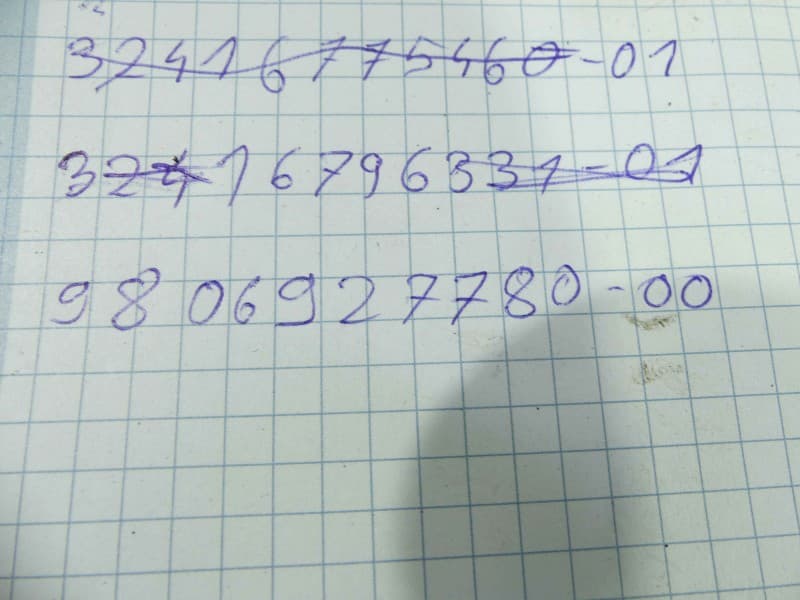 32416775460-01
32416796331-01
9806927780-00